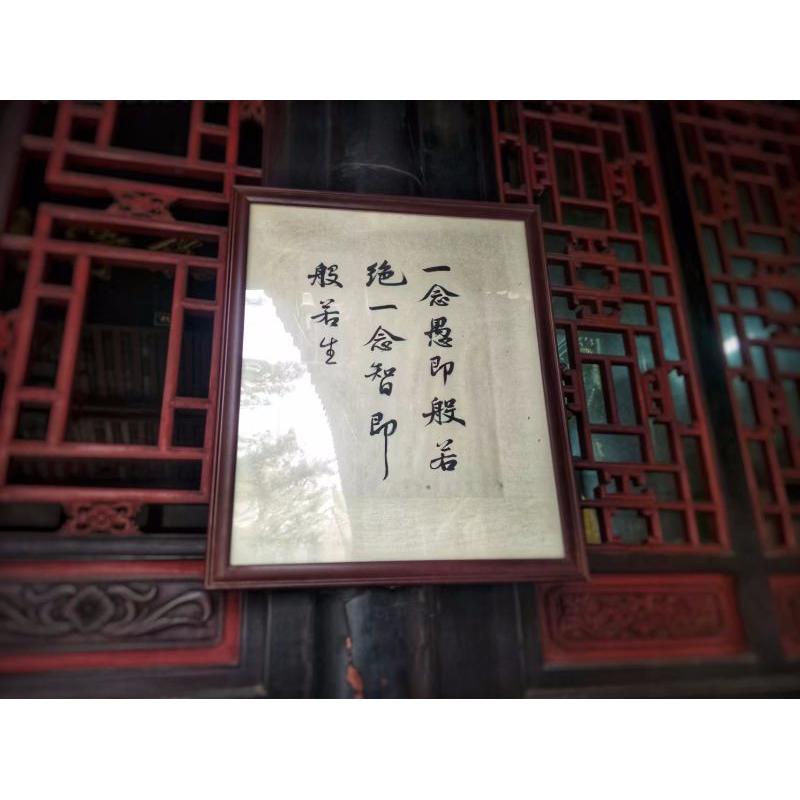 一念愚即般若
绝一念智即
般若生